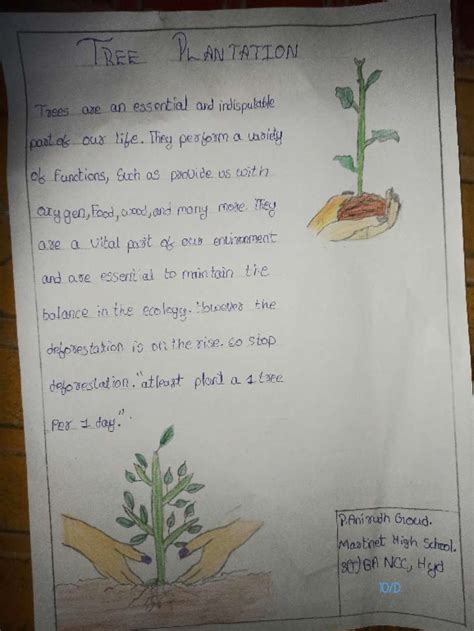 TREE PLANTATION
Trees are an essential and indisputable
part of our life. They perform a variety
of functions, Such as provide us with
oxygen, Food, wood, and many more. They
are a vital part of our environment
and are essential to maintain the
balance in the ecology. However the
deforestation is on the rise. so stop
deforestation. "atleast plant a 1 tree
Per 1 day."
P.Anirudh Groud.
High School.
NCC, Hyd
10/D